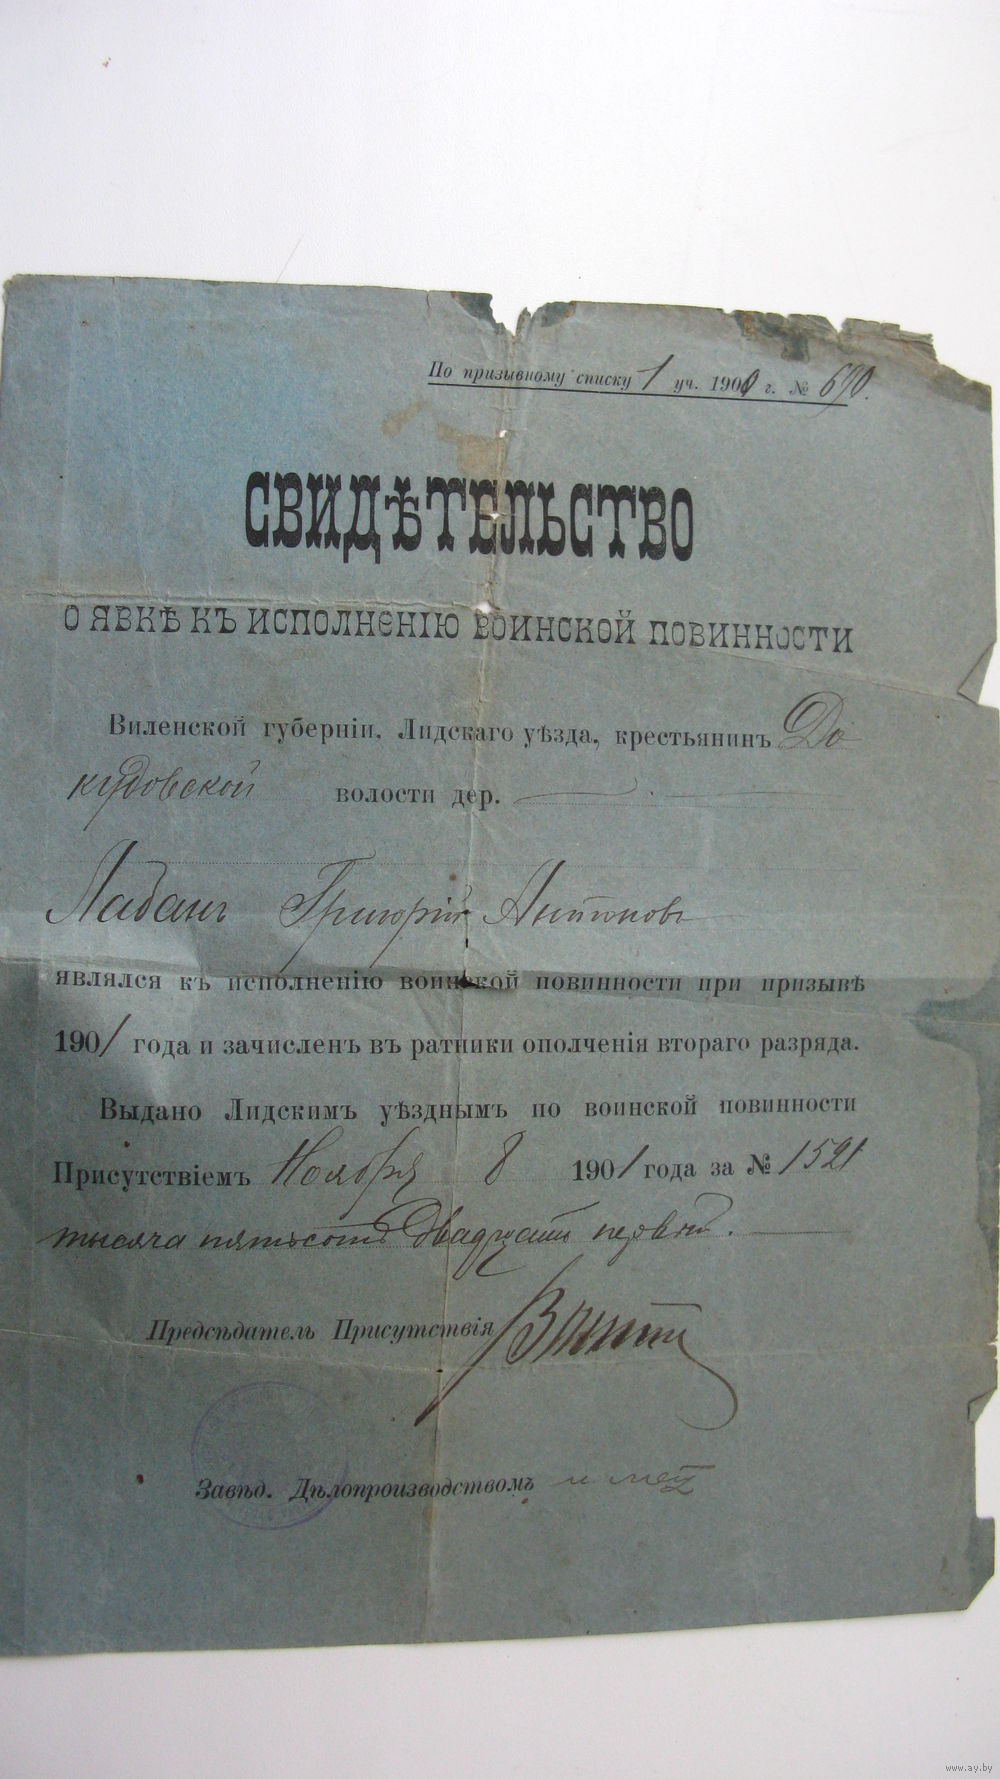 По призывному списку 1 уч. 1900 г. № 690.
СВИДѢТЕЛЬСТВО
О ЯВКѢ КЪ ИСПОЛНЕНІЮ ВОИНСКОЙ ПОВИННОСТИ
Виленской губерніи, Лидскаго уѣзда, крестьянинъ До
кудовской волости дер.
Лабанъ Григорій Антоновъ
являлся къ исполненію воинской повинности при призывѣ
1901 года и зачисленъ въ ратники ополченія втораго разряда.
Выдано Лидскимъ уѣзднымъ по воинской повинности
Присутствіемъ Ноября 8 1901 года за № 1521
тысяча пятьсотъ двадцать первый.
Предсѣдатель Присутствія
Завѣд. Дѣлопроизводствомъ
www.ay.by